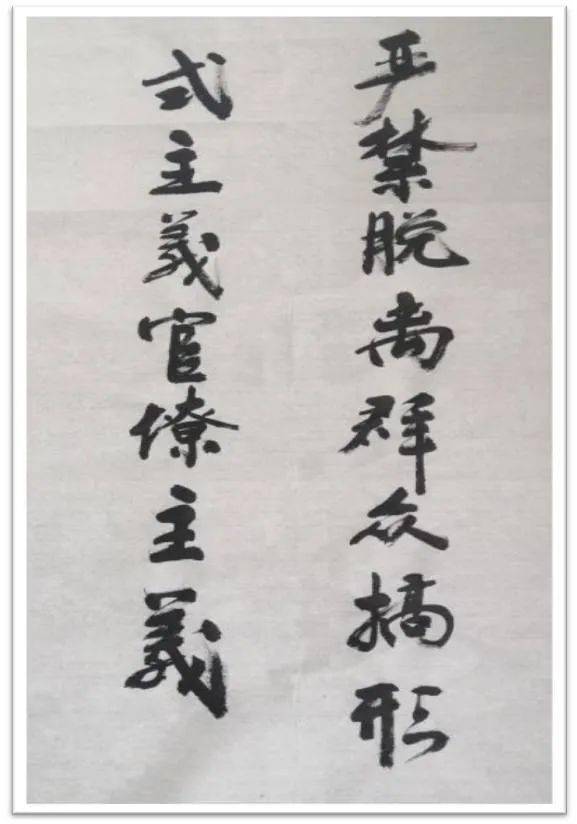 严禁脱离群众搞形
式主義官僚主義